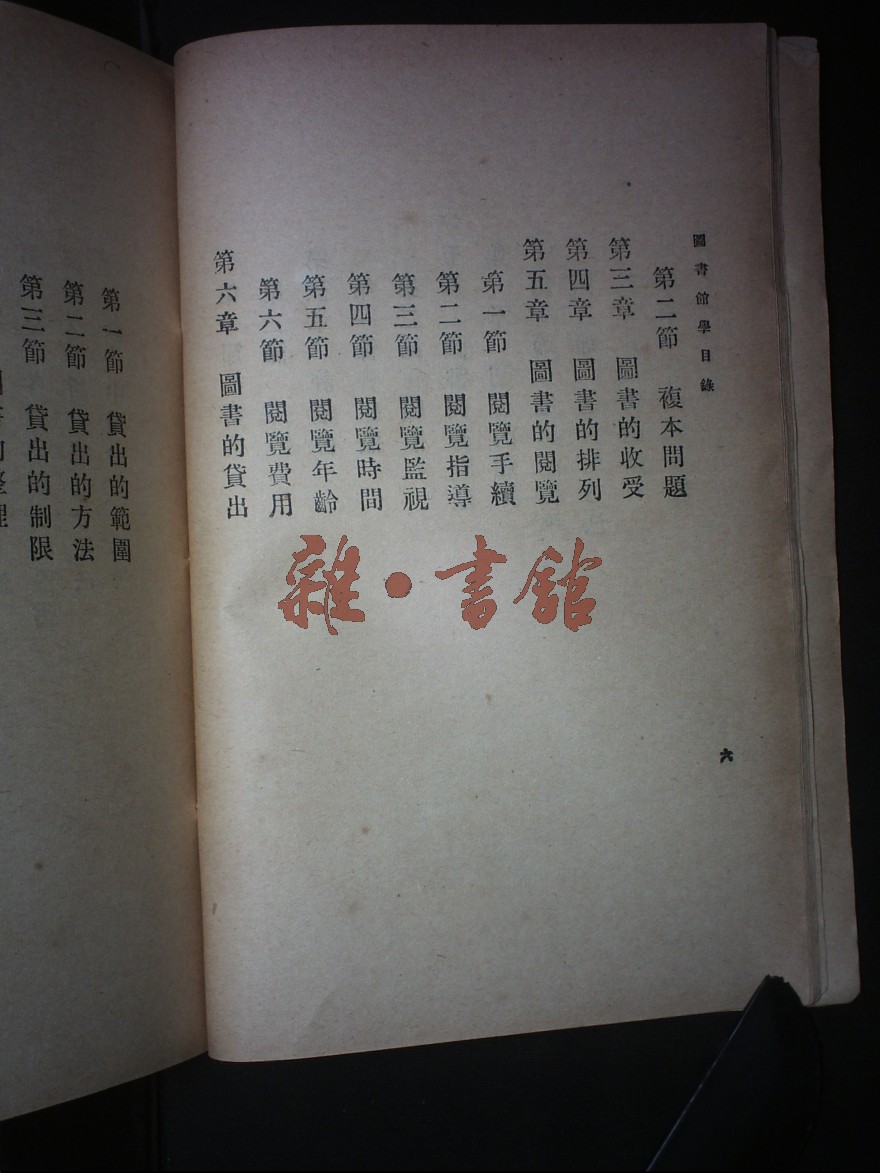 圖書館學目錄
第二節 複本問題
第三章 圖書的收受
第四章 圖書的排列
第五章 圖書的閱覽
第一節 閱覽手續
第二節 閱覽指導
第三節 閱覽監視
第四節 閱覽時間
第五節 閱覽年齡
第六節 閱覽費用
第六章 圖書的貸出
六
第一節 貸出的範圍
第二節 貸出的方法
第三節 貸出的制限
雜·書館